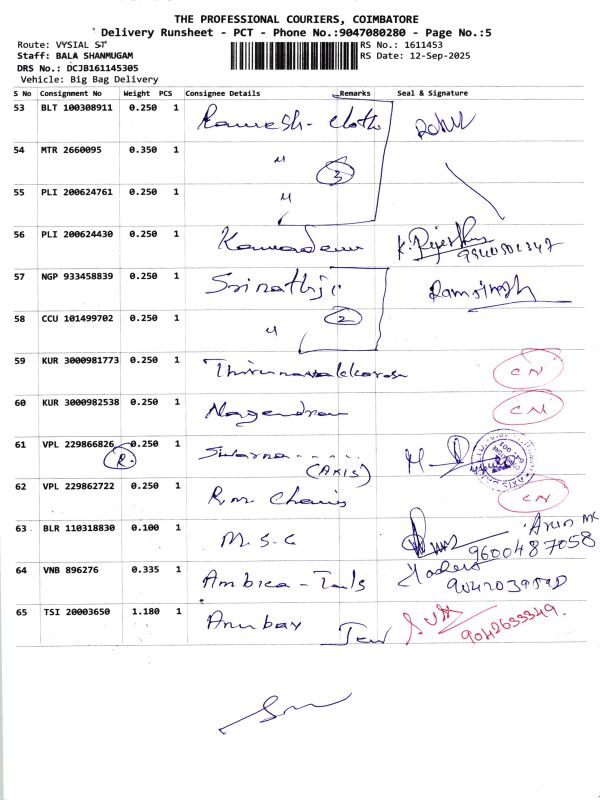 THE PROFESSIONAL COURIERS, COIMBATORE
Delivery Runsheet - PCT - Phone No.:9047080280 - Page No.:5
Route: VYSIAL ST
RS No.: 1611453
Staff: BALA SHANMUGAM
RS Date: 12-Sep-2025
DRS No.: DCJB161145305
Vehicle: Big Bag Delivery
S No Consignment No Weight PCS Consignee Details Remarks Seal & Signature
53 BLT 100308911 0.250 1 Ramesh - Cloth
54 MTR 2660095 0.350 1 〃 3
55 PLI 200624761 0.250 1 〃
56 PLI 200624430 0.250 1
57 NGP 933458839 0.250 1 Srinathji
58 CCU 101499702 0.250 1 〃 2
59 KUR 3000981773 0.250 1 CN
60 KUR 3000982538 0.250 1 Nagendran CN
61 VPL 229866826 0.250 1 R. (AXIS)
62 VPL 229862722 0.250 1 R.M. Chains CN
63 BLR 110318830 0.100 1 M.S.C 9600487058
64 VNB 896276 0.335 1 Ambica - Tools
65 TSI 20003650 1.180 1 9042633349.